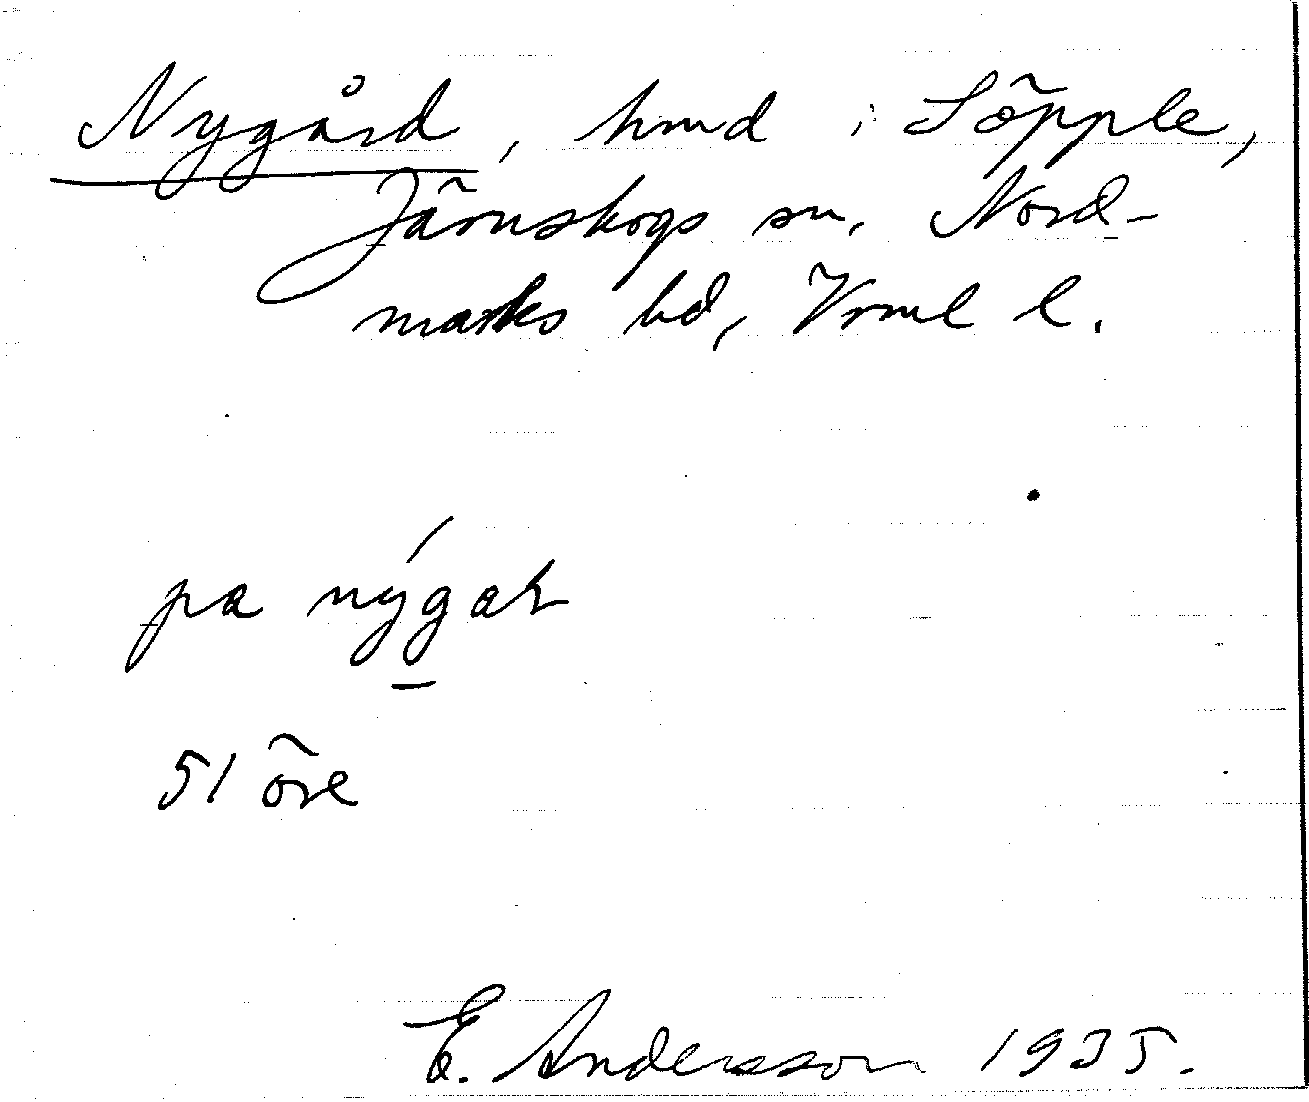 Nygård, hmd i Söpple,
Järnskogs sn, Nord-
marks hd, Vrml l.
pa nýgaƚ
51 öre
E. Andersson 1935.